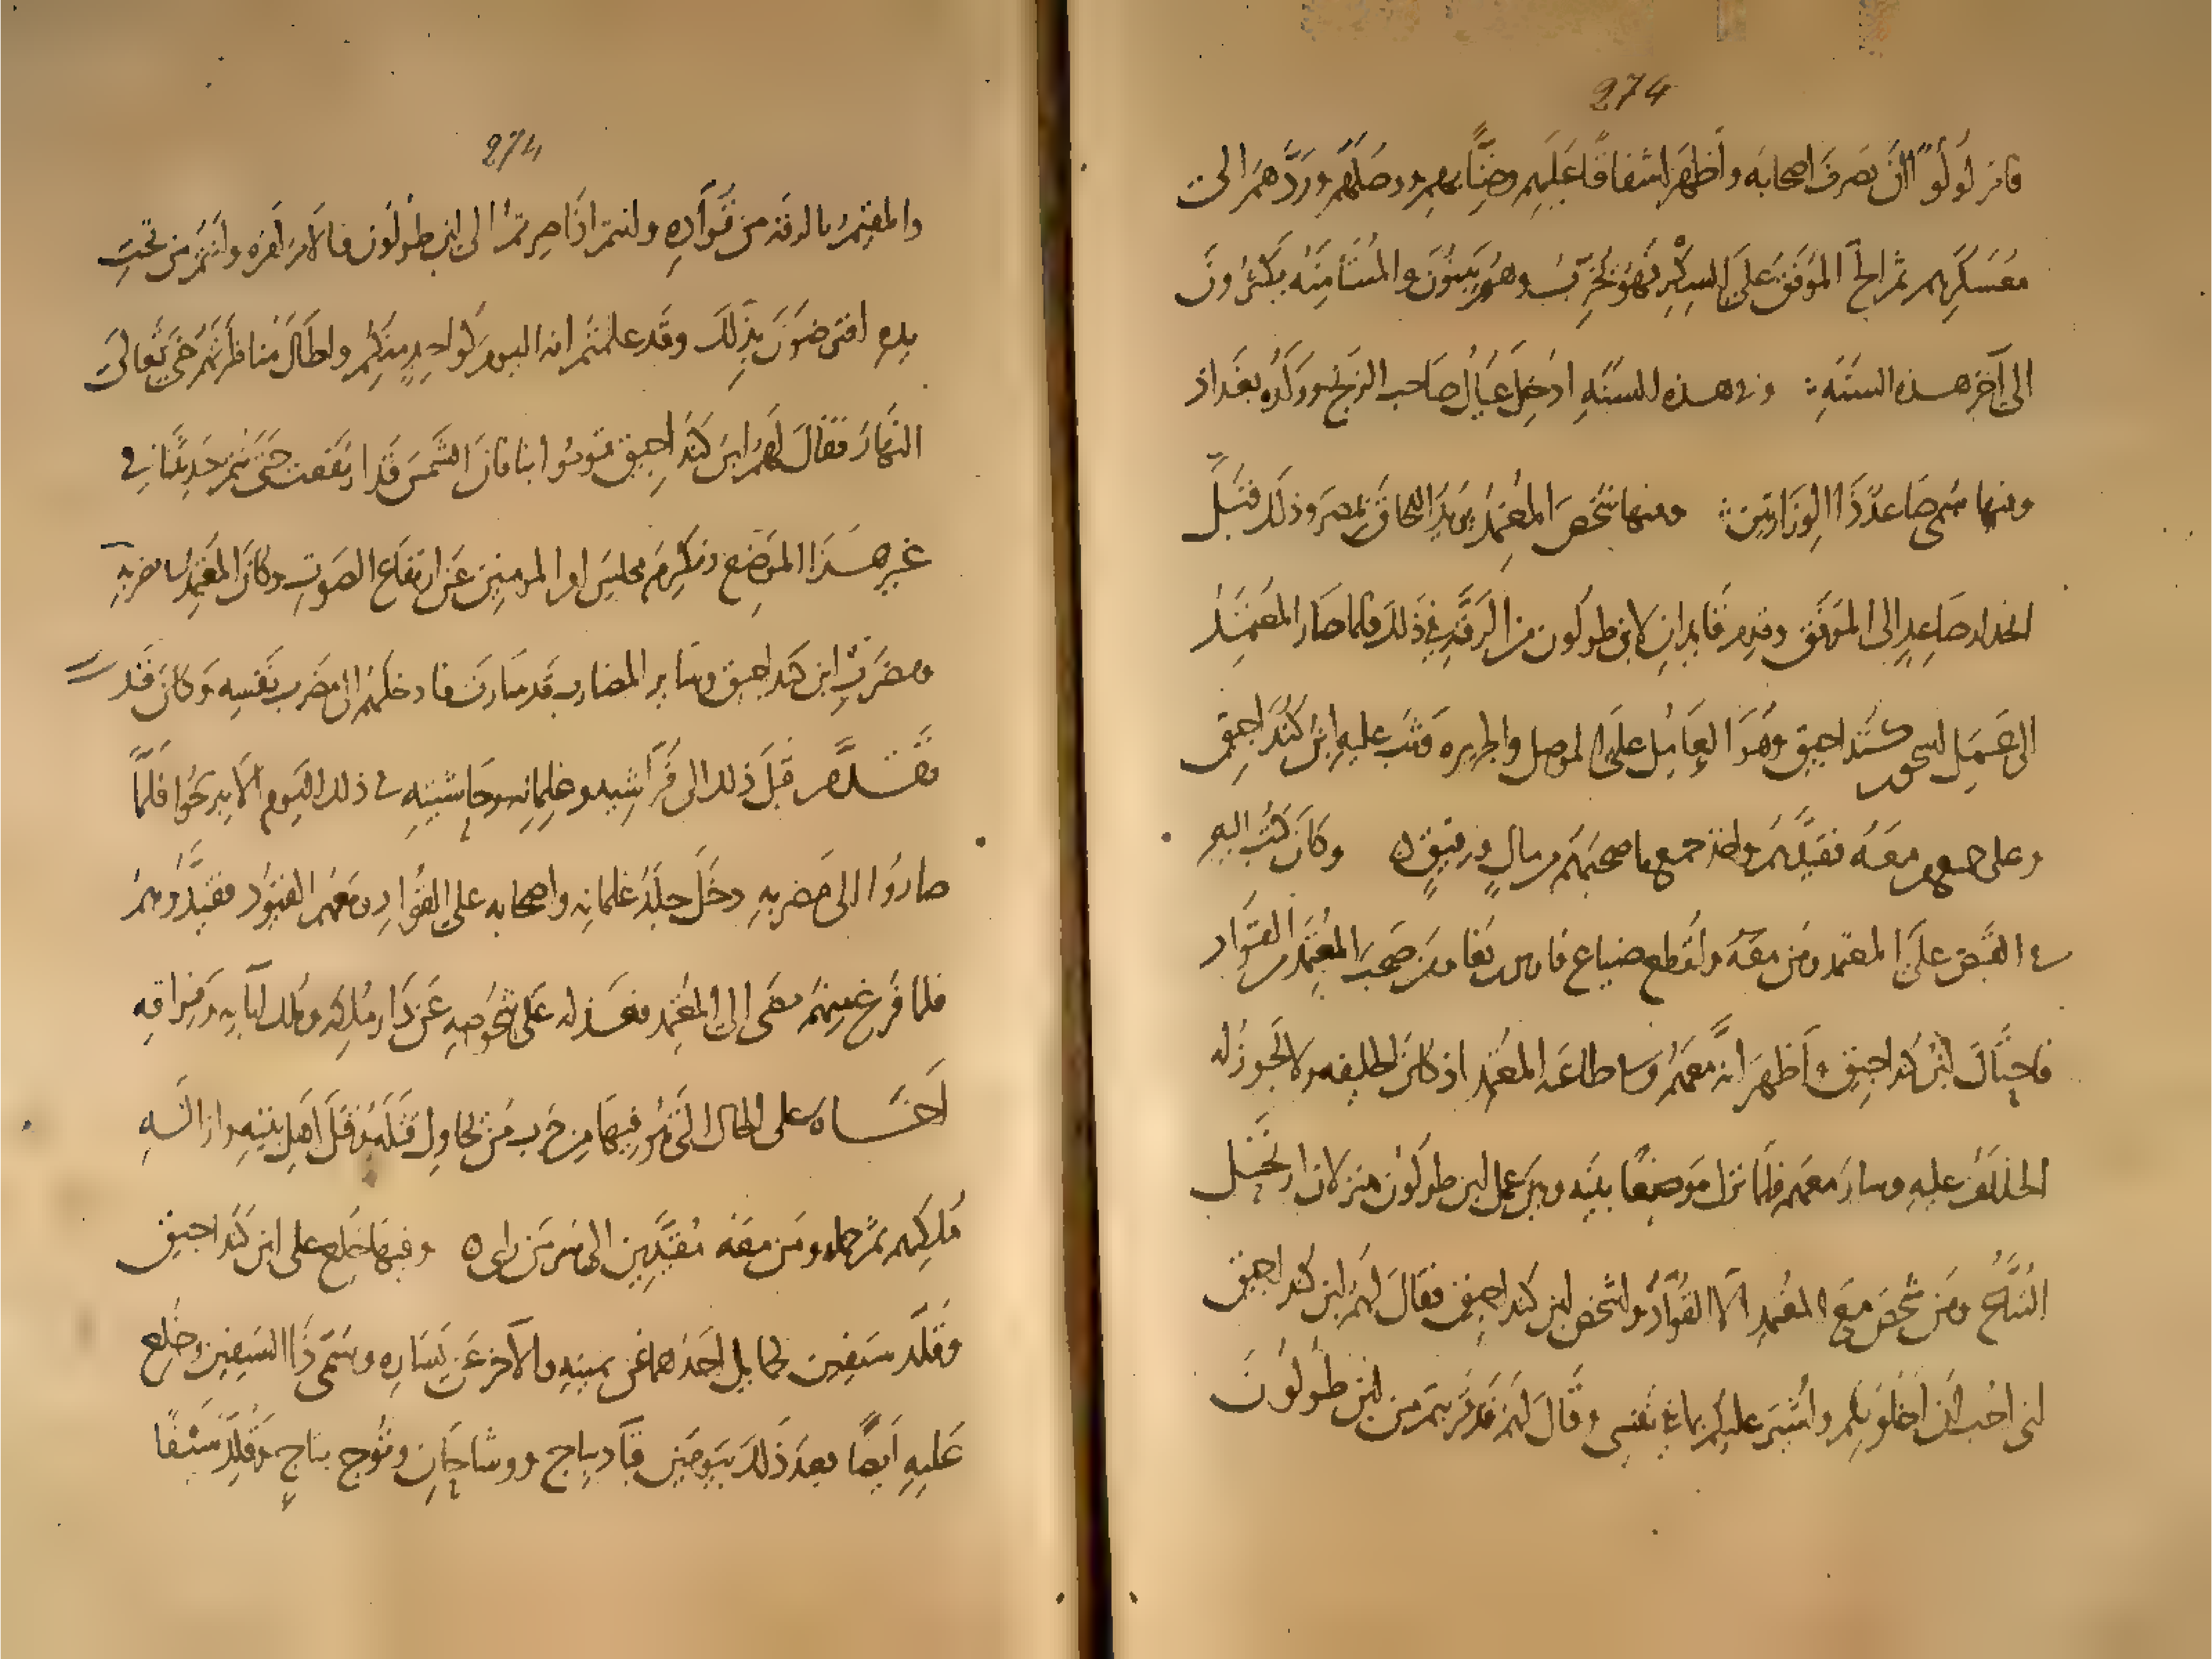 274
فامر لولوًا ان يصرف اصحابه واظهر اشفاقًا عليهم وضنًّا بهم ووصلهم وردهم الى
معسكرهم ثم الح الموفق على السكر فهو يخرب وهم يبنون والمستامنه يكثرون
الى آخر هذه السنة وفى هذه السنة ادخل عيال صاحب الزنج وولده بغداذ
ومنها سمى صاعد ذا الوزارتين ومنها شخص المعتمد يريد اللحاق بمصر وذلك قبل
انحدار صاعد الى الموفق وقدم قايدان لابن طولون من الرقة فى ذلك فلما صار المعتمد
الى عمل اسحق بن كنداجيق وهو العامل على الموصل والجزيره وثب عليه ابن كنداجيق
وعلى من معه فقيدهم واخذ جميع ما صحبهم من مال ورقيق وكان كتب اليه
فى القبض على المعتمد ومن معه واقطع ضياع فارس بن بغا ومن صحب المعتمد من القواد
فاحتال ابن كنداجيق واظهر انه معهم وفى طاعة المعتمد اذ كان الخليفه ولا يجوز له
الخلاف عليه وسار معهم فلما نزل موضعًا بينه وبين عمل ابن طولون منزلان ارتحل
التباع ومن شخص مع المعتمد الا القواد ولم يشخص ابن كنداجيق فقال لهم ابن كنداجيق
انى احب ان اخلو بكم واشير عليكم بما فى نفسى وقال لهم قد قربتم من ابن طولون
274
والمقيم بالرقه من قواده وانتم اذا صرتم الى ابن طولون فالامر امره وانتم من تحت
يده افترضون بذلك وقد علمتم انه اليوم كواحد منكم واطال مناظرتهم حتى تعالى
النهار فقال لهم ابن كنداجيق قوموا بنا فان الشمس قد ارتفعت حتى نتم حديثنا فى
غير هذا الموضع ونكرم مجلس امير المومنين عن ارتفاع الصوت وكان المعتمد فى مضربه
ومضرب ابن كنداجيق وساير المضارب قد سارت فادخلهم الى مضرب نفسه وكان قد
تقدم قبل ذلك الى فراشيه وغلمانه وحاشيته فى ذلك اليوم الا يبرحوا فلما
صاروا الى مضربه دخل جلد غلمانه واصحابه على القواد ومعهم القيود فقيدوهم
فلما فرغ منهم مضى الى المعتمد فعذله على شخوصه عن دار ملكه وملك آبايه وفراقه
اخاه على الحال التى هو فيها من حرب من يحاول قتله وقتل اهل بيته وازالة
ملكهم ثم حمله ومن معه مقيدين الى سر من راى وفيها خلع على ابن كنداجيق
وقلد سيفين بحمايل احدهما عن يمينه والآخر عن يساره وسمى ذا السيفين وخلع
عليه ايضًا بعد ذلك بيومين قبآ ديباج ووشاحان وتوج بتاج وقلد سيفًا